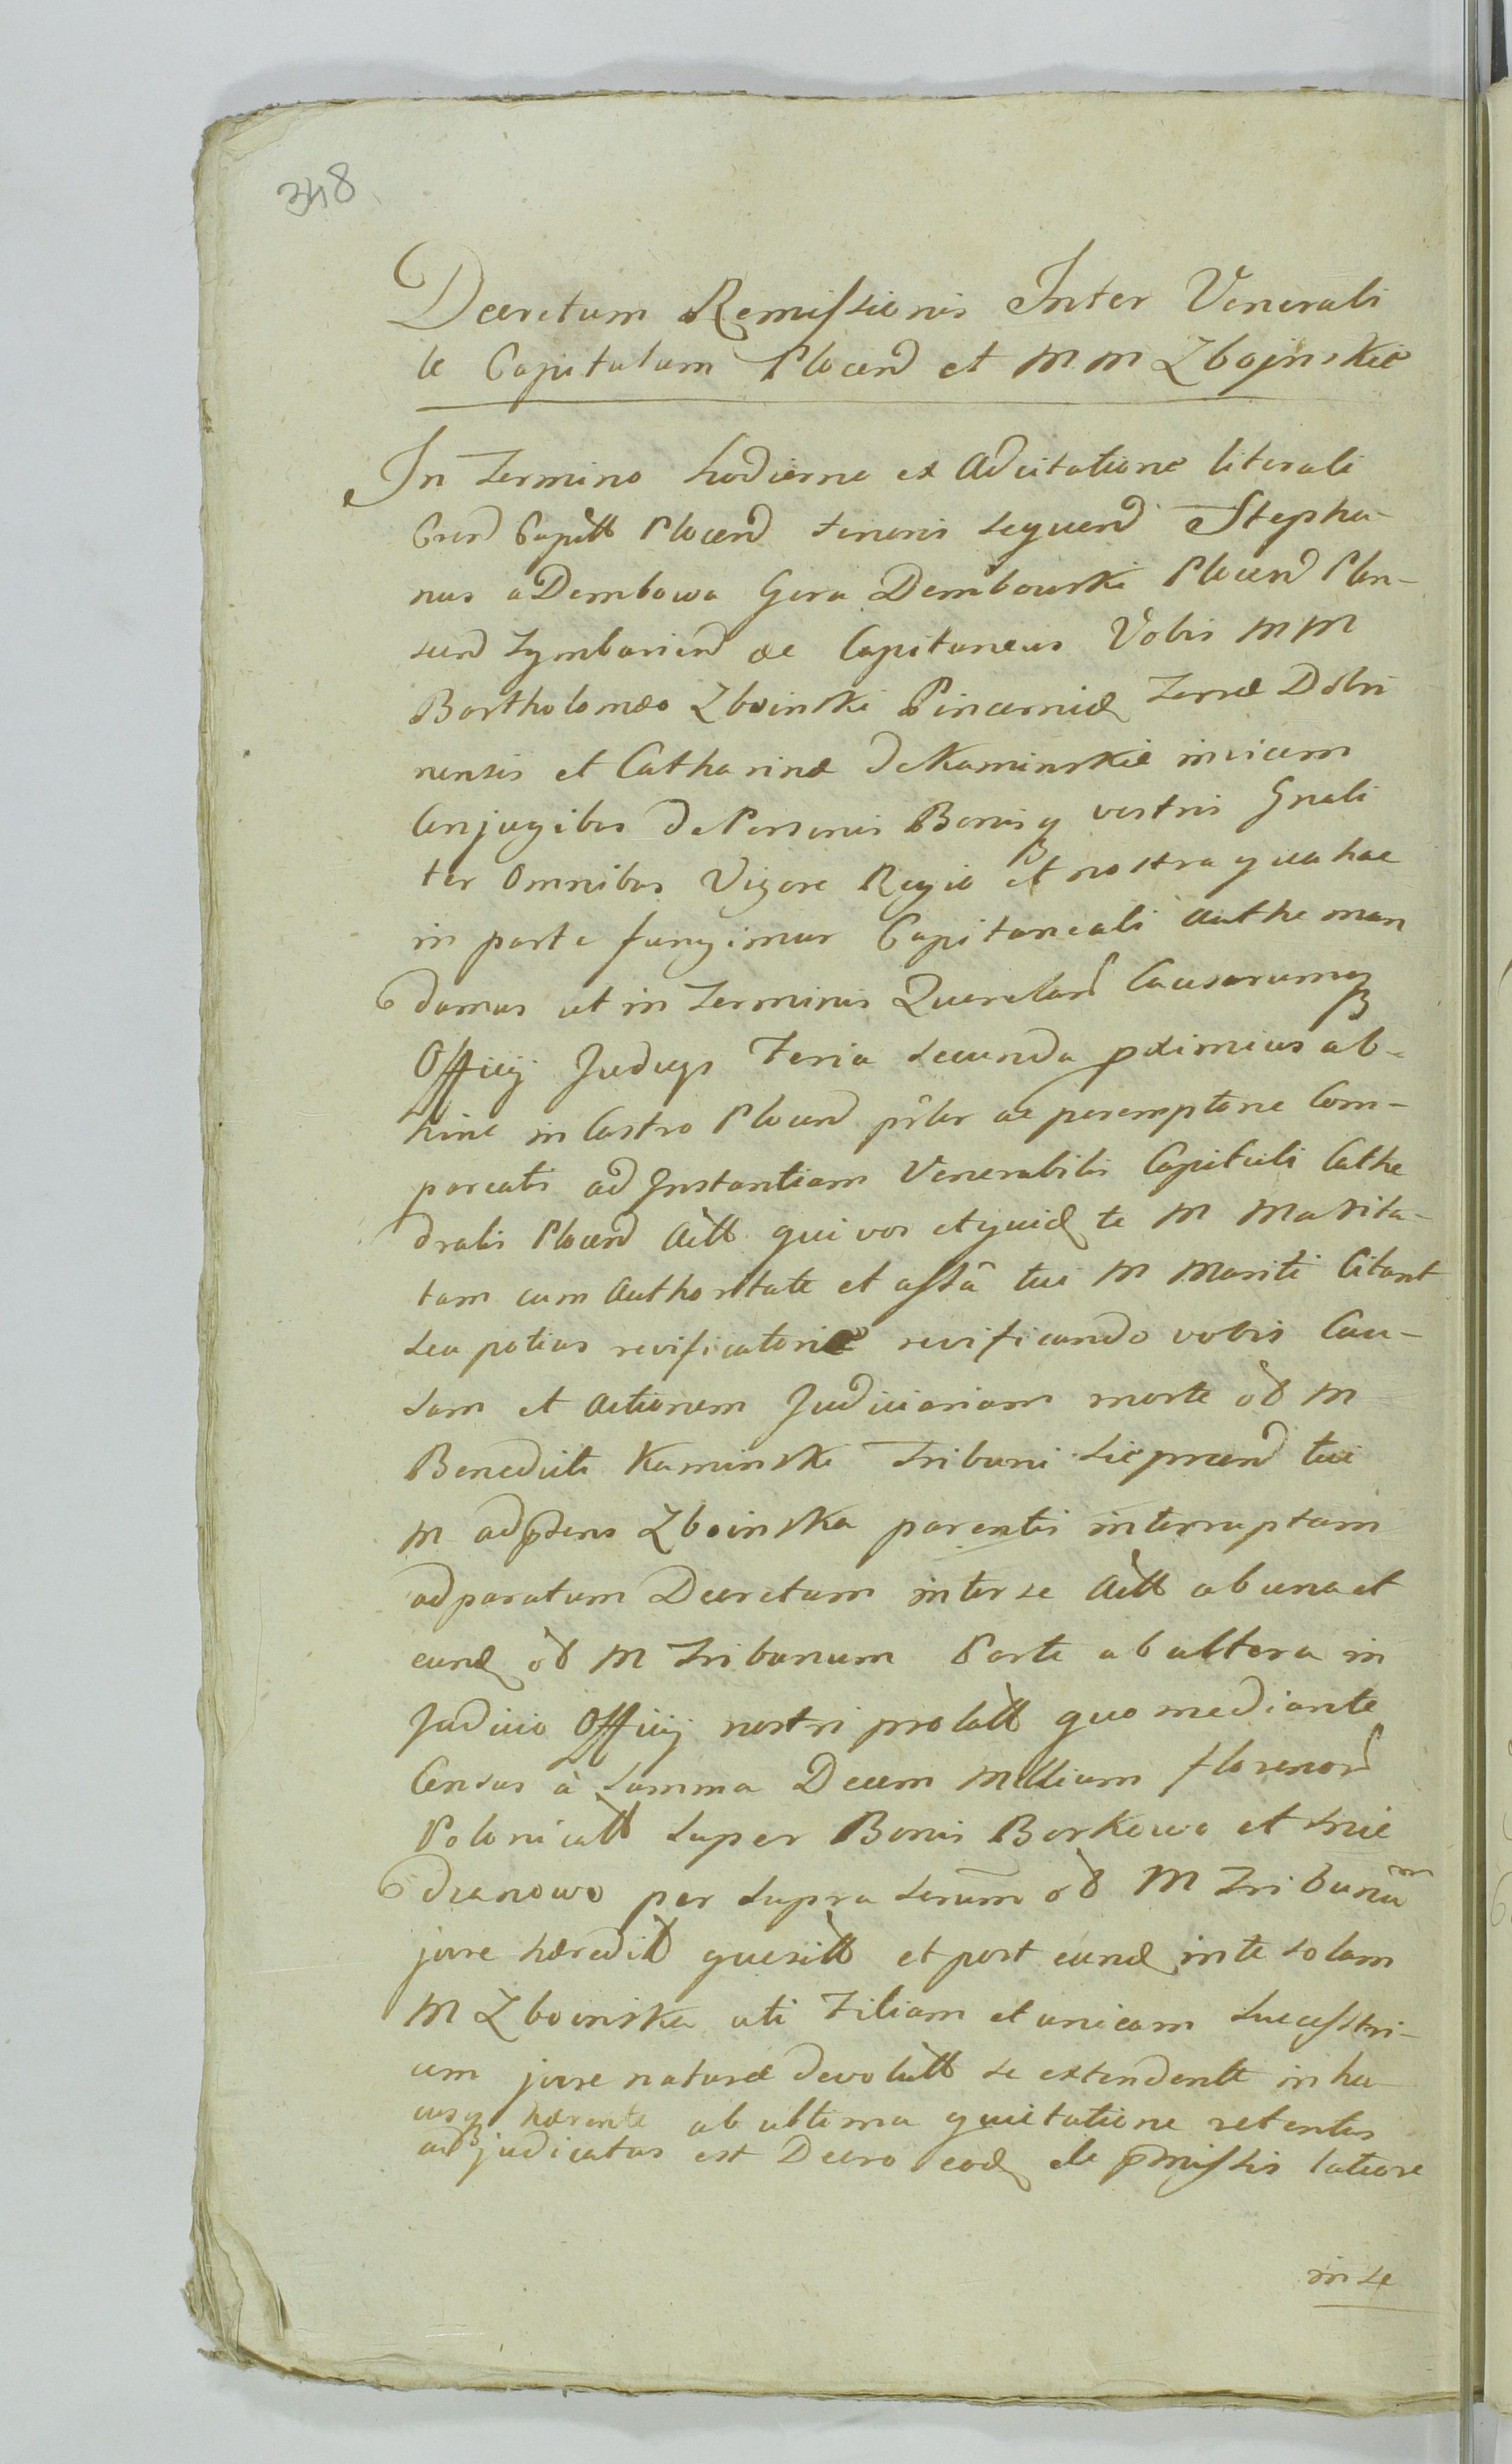 348
Decretum Remissionis Inter Venerabi
le Capitulum Plocen et M M Zbojnskie
In Termino hodierno ex Adcitatione literali
Cren Captt Plocen tenoris sequen Stepha
nus a Dembowa Gora Dembowski Plocen Plon-
scen Szymborien ac Capitaneus Vobis M M
Bartholomæo Zboinski Pincernæ Terræ Dobri
nensis et Catharinæ de Kaminskie invicem
Conjugibus de Personis Bonisq vestris Gnali
ter Omnibus Vigore Regio et nostra qua hac
in parte fungimur Capitaneali Authe man
damus ut in Terminis Querelar Causarumq
Officij Judicys Feria secunda pximius ab-
hinc in Castro Plocen pnlr ac peremptorie Com-
pareatis ad Instantiam Venerabilis Capituli Cathe
dralis Plocen Actt qui vos et quid te M Marita-
tam cum Authoritate et assa tui M Mariti Citant
seu potius revificatoriæ revificando vobis Cau-
sam et Actionem Judiciariam morte od M
Benedicti Kaminski Tribuni Sieprcen tui
M adptens Zboinska parentis interruptam
ad paratum Decretum inter se Actt ab una et
eund od M Tribunum Parte ab altera in
Judicio Officij nostri prolatt quo mediante
Census à Summa Decem Millium florenor
Polonicatt super Bonis Borkowo et Srie
dranowo per supra Serum od M Tribunum
jure hæredit quesitt et post eund in te solam
M Zboinska uti Filiam et unicam Successtri-
cem jure naturæ devolutt se extendente in hu
cusq hærente ab ultima quietatione retentus
adjudicatus est Decro eod de pmissis latiore
in se